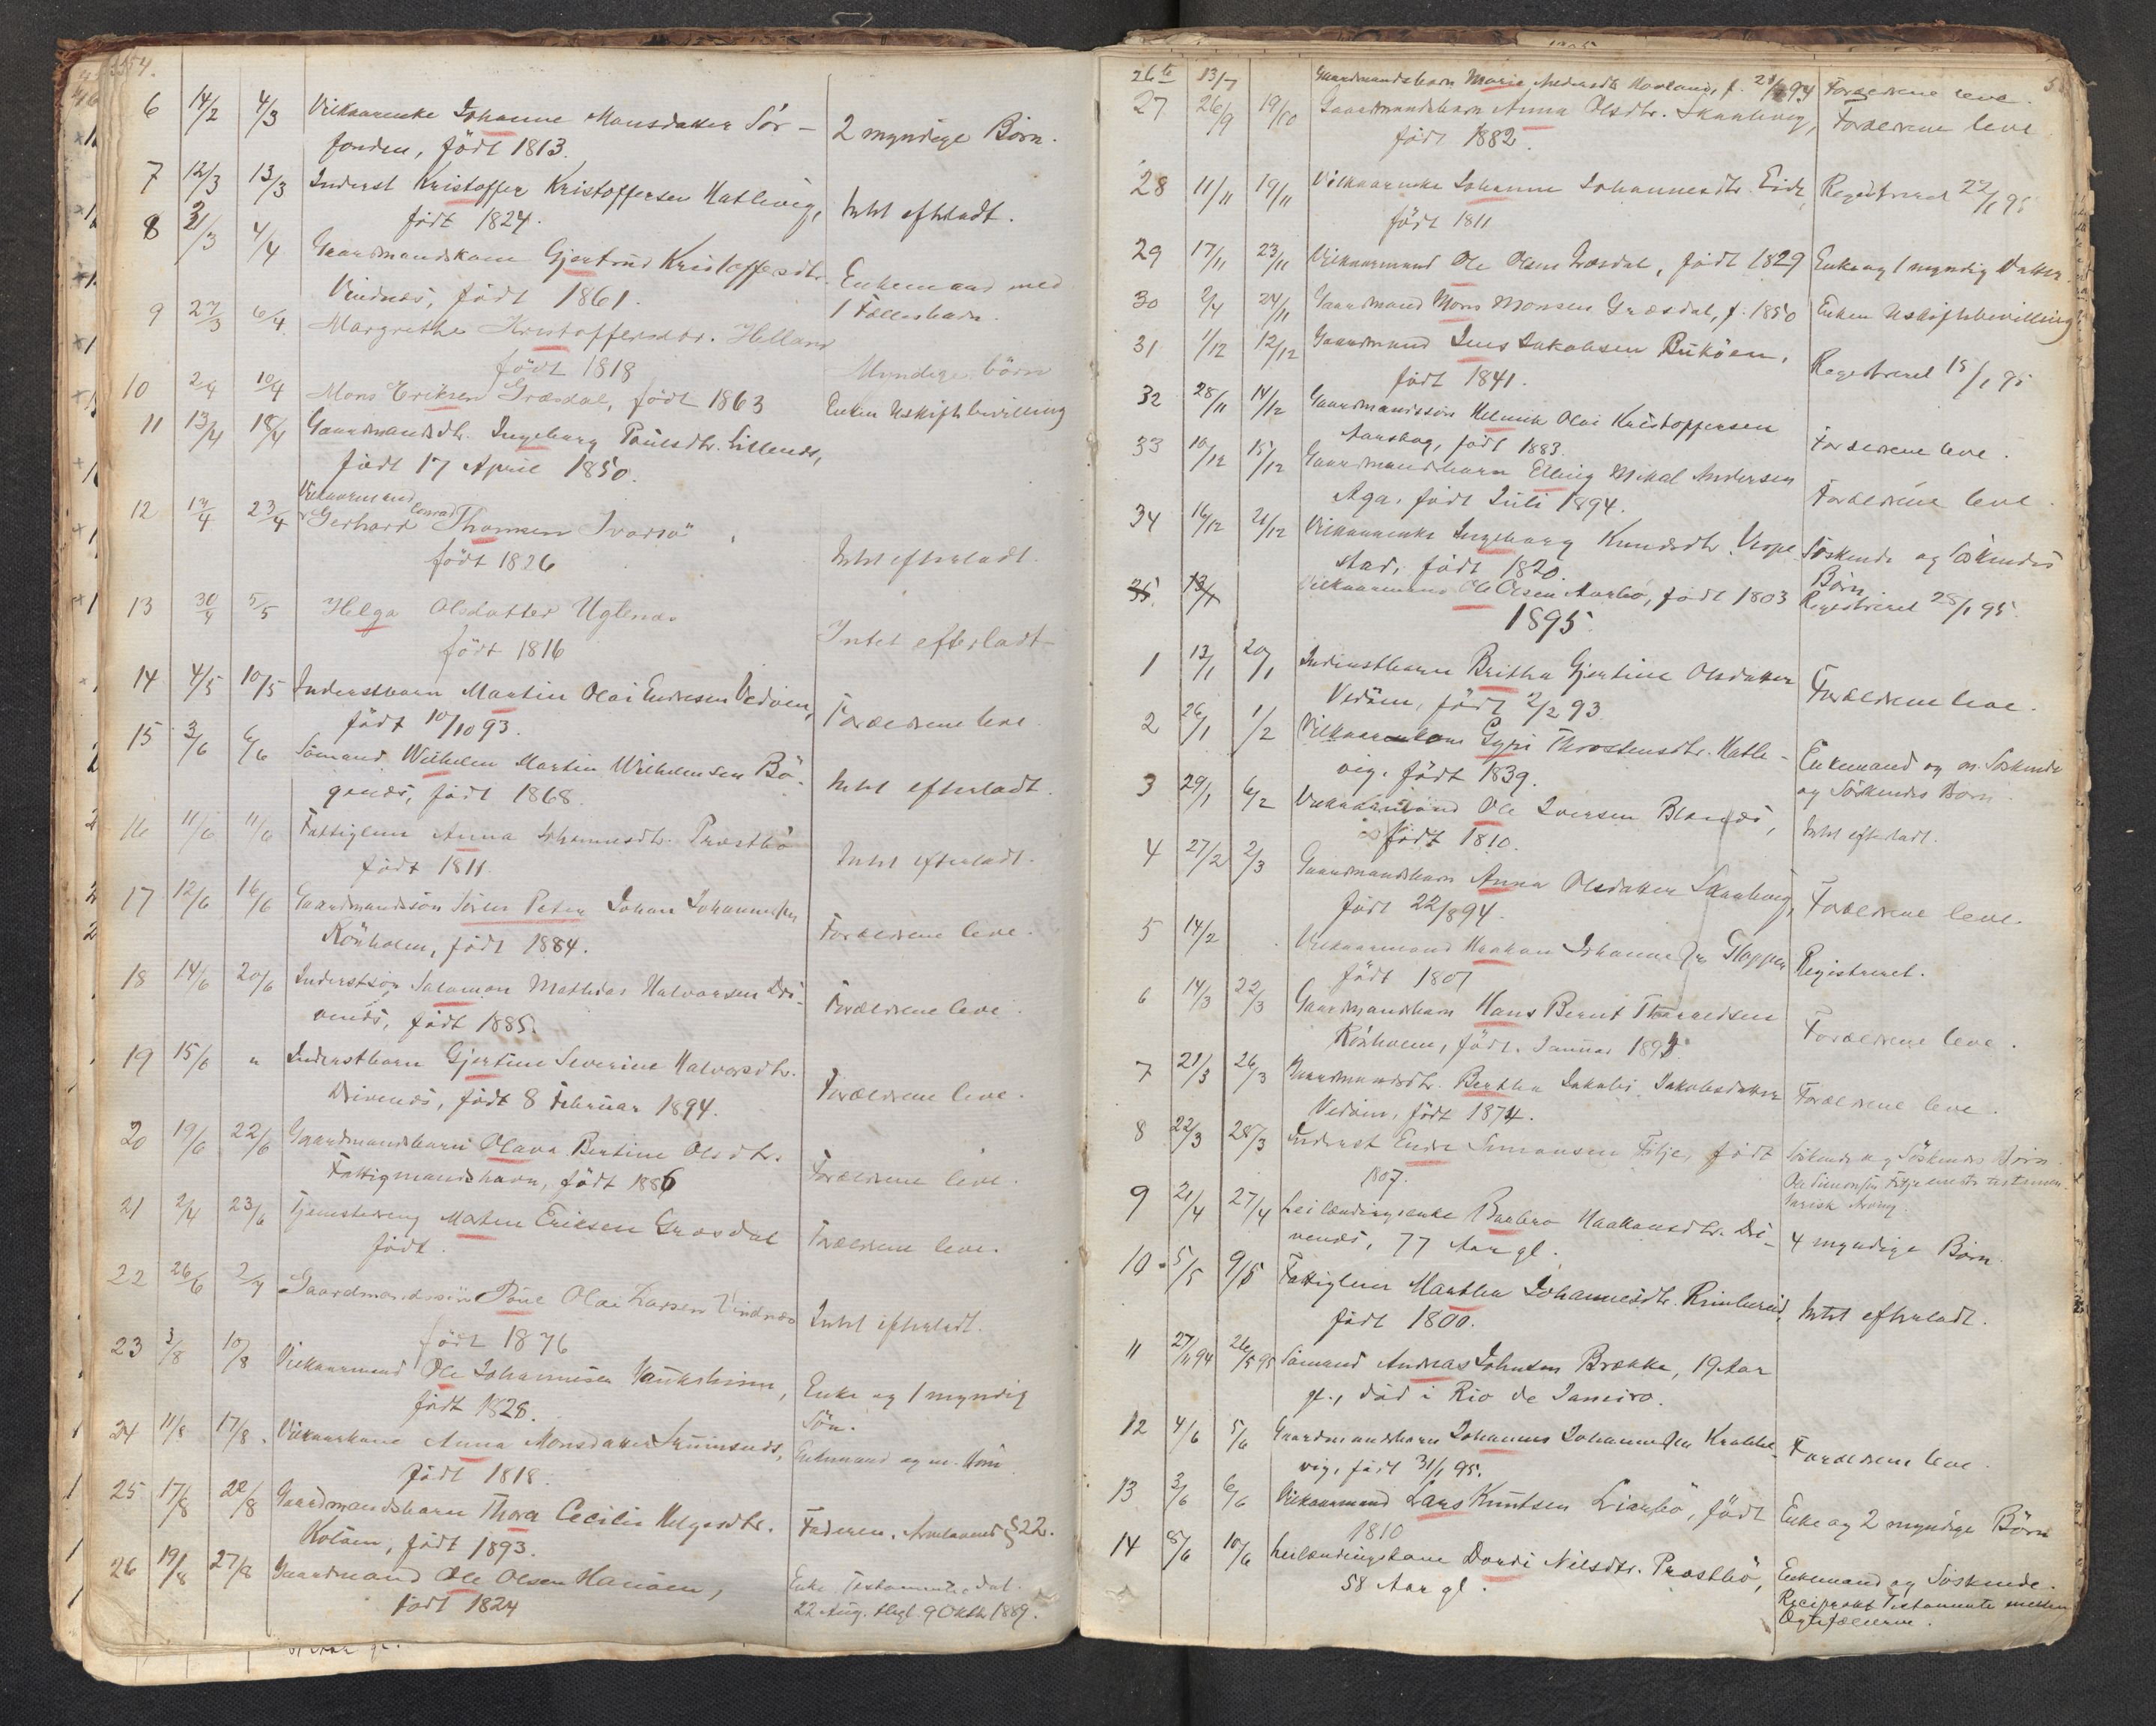 554.
6 14/2 4/3 Vilkaarenke Johanne Monsdatter Sör- 2 myndige Börn.
fonden, födt 1813.
7 12/3 13/3 Inderst Kristoffer Kristoffersen Hatlevig, Intet efterladt.
födt 1824.
8 /3 4/4 Gaardmandskone Gjertrud Kristoffersdtr. Enkemand med
Vindnæs, födt 1861. 1 Fællesbarn.
9 27/3 6/4 Margrethe Kristoffersdtr. Helland
födt 1818 Myndige börn
10 2/4 10/4 Mons Eriksen Græsdal, födt 1863 Enken Uskiftebevilling
11 13/4 18/4 Gaardmandsdtr. Ingeborg Paulsdtr. Lillenæs,
födt 17 April 1850.
12 /4 23/4 Vilkaarmand
Gerhard Conrad Thomsen Ivarsö,
födt 1826 Intet efterladt.
13 30/4 5/5 Helga Olsdatter Uglenæs
födt 1816 Intet efterladt
14 4/5 10/5 Inderstbarn Martin Olai Endresen Vedöien,
födt 10/10 93. Forældrene leve.
15 3/6 6/6 Sömand Wilhelm Martin Wilhelmsen Bö-
genæs, födt 1868. Intet efterladt.
16 11/6 11/6 Fattiglem Anna Johannesdtr. Præstbö
födt 1811. Intet efterladt.
17 12/6 16/6 Gaardmandssön Sören Peter Johan Johannessen
Rönholm, födt 1884. Forældrene leve.
18 14/6 20/6 Inderstsön Salamon Mathias Halvorsen Dri-
venæs, födt 1885. Forældrene leve.
19 15/6 " Inderstbarn Gjertine Severine Halvorsdtr.
Drivenæs, födt 8 Februar 1894. Forældrene leve.
20 19/6 22/6 Gaardmandsbarn Olava Bertine Olsdtr.
Fattigmandshavn, födt 1886 Forældrene leve.
21 2/4 23/6 Tjenestedreng Morten Eriksen Græsdal
födt. Forældrene leve.
22 26/6 2/7 Gaardmandssön Paul Olai Larsen Vindnæs
födt 1876 Intet efterladt.
23 3/8 10/8 Vilkaarmand Ole Johannesen Hauksheim, Enke og 1 myndig
födt 1828. Sön.
24 11/8 17/8 Vilkaarkone Anna Monsdatter
födt 1818. Enkemand og m. Börn
25 17/8 22/8 Gaardmandsbarn Thora Cecilie Helgesdtr.
Koløen, födt 1893. Faderen, Arveloven §22.
26 19/8 27/8 Gaardmand Ole Olsen Hauøen, Enke, Testamente dat.
födt 1824 22 Aug. thgl. 9 Oktb 1889.
26b 13/7 Gaardmandsbarn Marie Andersdtr. Hovland, f. 94 Forældrene leve.
27 26/9 19/10 Gaardmandsbarn Anna Olsdtr. Skaalevig, Forældrene leve
födt 1882.
28 11/11 19/11 Vilkaarenke Johanne Johannesdtr. Eide, Registreret 22/1 95
födt 1811
29 17/11 23/11 Vilkaarmand Ole Olsen Græsdal, födt 1829 Enke og 1 myndig Datter.
30 2/4 24/11 Gaardmand Mons Monsen Græsdal, f. 1850 Enken Uskiftebevilling
31 1/12 12/12 Gaardmand Jens Jakobsen Buköen, Registreret 15/1 95
födt 1841.
32 28/11 14/12 Gaardmandssön Helmik Olai Kristoffersen
Aarskog, födt 1883. Forældrene leve.
33 10/12 15/12 Gaardmandsbarn Elling Mikal Andersen
Aga, födt Juli 1894. Forældrene leve.
34 16/12 21/12 Vilkaarenke Ingeborg Knudsdtr. Vespe- Söskende og Söskendes
stad, födt 1820. Börn
35 13/1 Vilkaarmand Ole Olsen Aarbö, födt 1803 Registreret 28/1 95
1895.
1 13/1 20/1 Inderstbarn Britha Gjertine Olsdatter
Vedöien, födt 2/2 93. Forældrene leve.
2 26/1 1/2 Vilkaarskone Gyri Thrortensdtr. Hatle- Enkemand og m. Söskende
vig, födt 1839. og Söskendes Börn.
3 29/1 6/2 Vilkaarmand Ole Iversen Blænæs,
födt 1810. Intet efterladt.
4 27/2 2/3 Gaardmandsbarn Anna Olsdatter Skaalevig,
födt 22/8 94. Forældrene leve.
5 14/2 Vilkaarmand Haakon Johannessen Kloppen Registreret.
födt 1807
6 14/3 22/3 Gaardmandsbarn Hans Bernt Thoraldsen
Rönholm, födt. Januar 1895. Forældrene leve.
7 21/3 26/3 Gaardmandsdtr. Bertha Jakobi Jakobsdatter
Vedöien, födt 1874. Forældrene leve.
8 22/3 28/3 Inderst Endre Simonsen Fitje, födt Söskende og Söskendes Börn.
1807. Ole Simonsen Fitje eneste testamen-
tarisk Arving.
9 21/4 27/4 Leilændingsenke Barbro Haakonsdtr. Dri-
venæs, 77 Aar gl. 4 myndige Börn.
10 5/5 9/5 Fattiglem Martha Johannesdtr. Rimbereid, Intet efterladt.
födt 1800.
11 27/11 94 26/5 95 Sömand Andreas Johnsen Brække, 19 Aar
gl., död i Rio de Janeiro.
12 4/6 5/6 Gaardmandsbarn Johannes Johannessen Krabbe-
vig, födt 31/1 95. Forældrene leve.
13 3/6 6/6 Vilkaarmand Lars Knutsen Liarbö, födt Enke og 2 myndige Börn
1810
14 8/6 10/6 Leilændingskone Dordi Nilsdtr. Præstbö, Enkemand og Söskende.
58 Aar gl. Reciprokt Testamente mellem
Ægtefællerne.